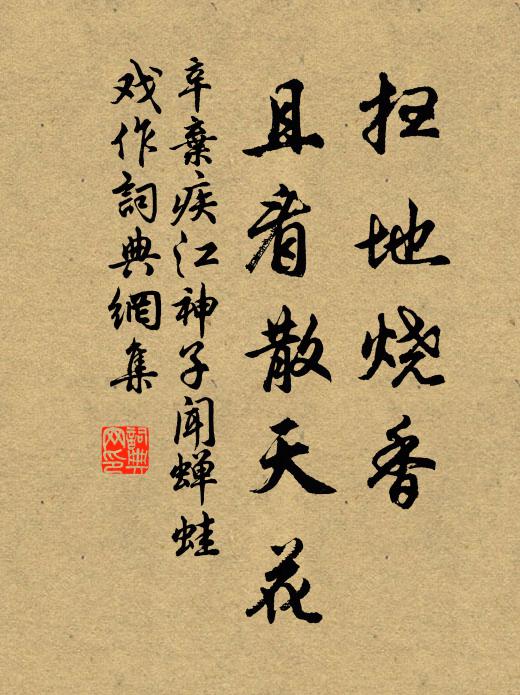 扫地烧香
且看散天花
辛棄疾江神子闻蝉蛙
戏作詞典網集
詞典网印